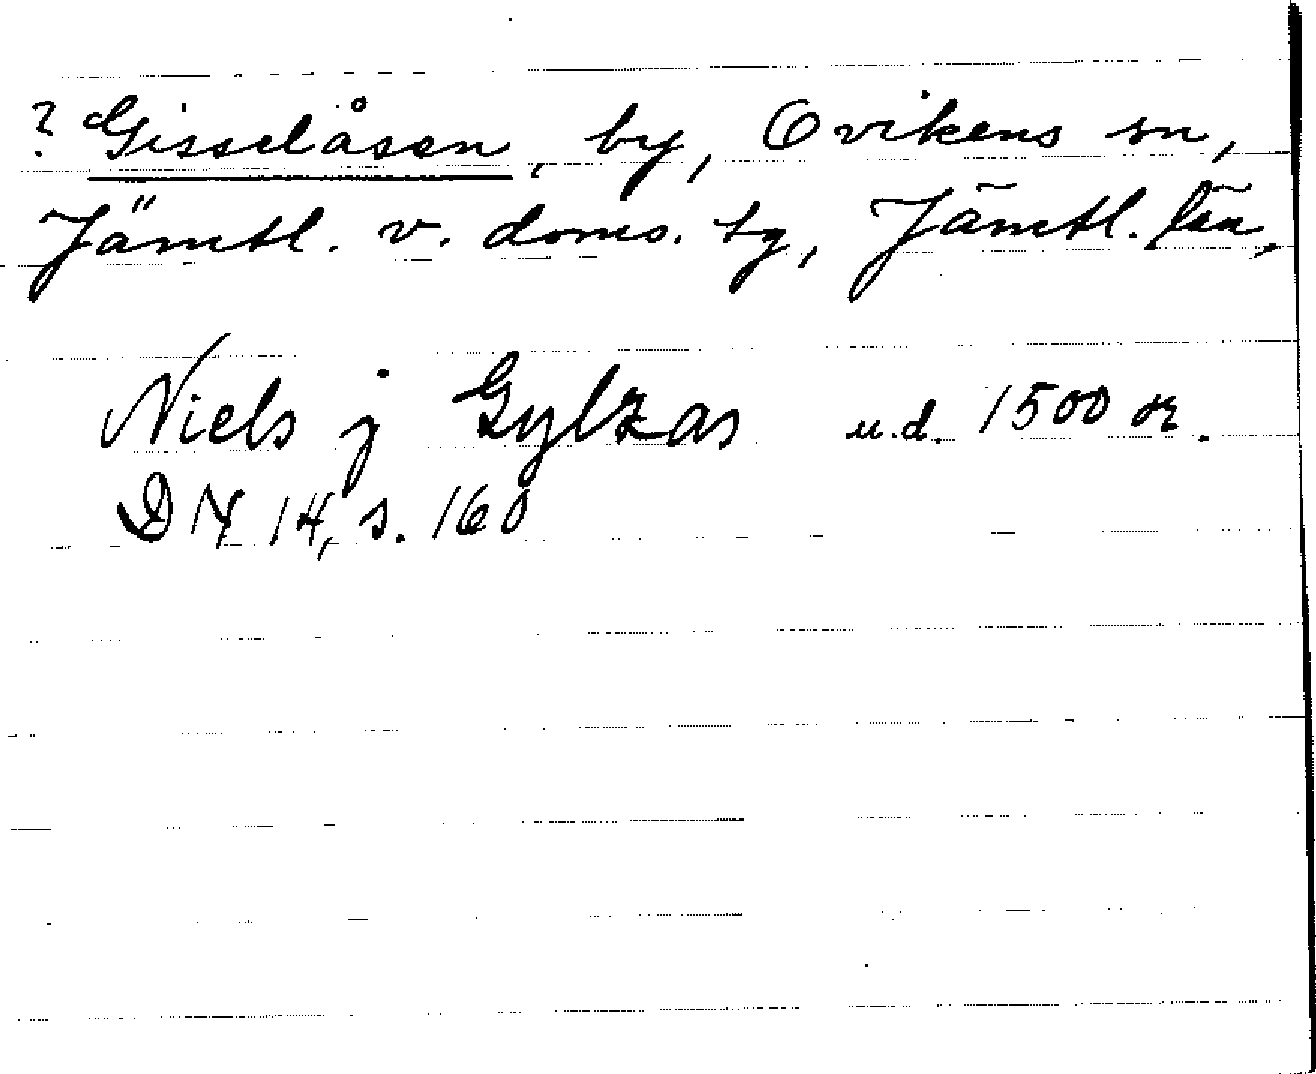 ? Gisselåsen, by, Ovikens sn,
Jämtl. v. doms. tg, Jämtl. län,
Niels j Gylzas u.d. 1500 
DN 14, s. 160